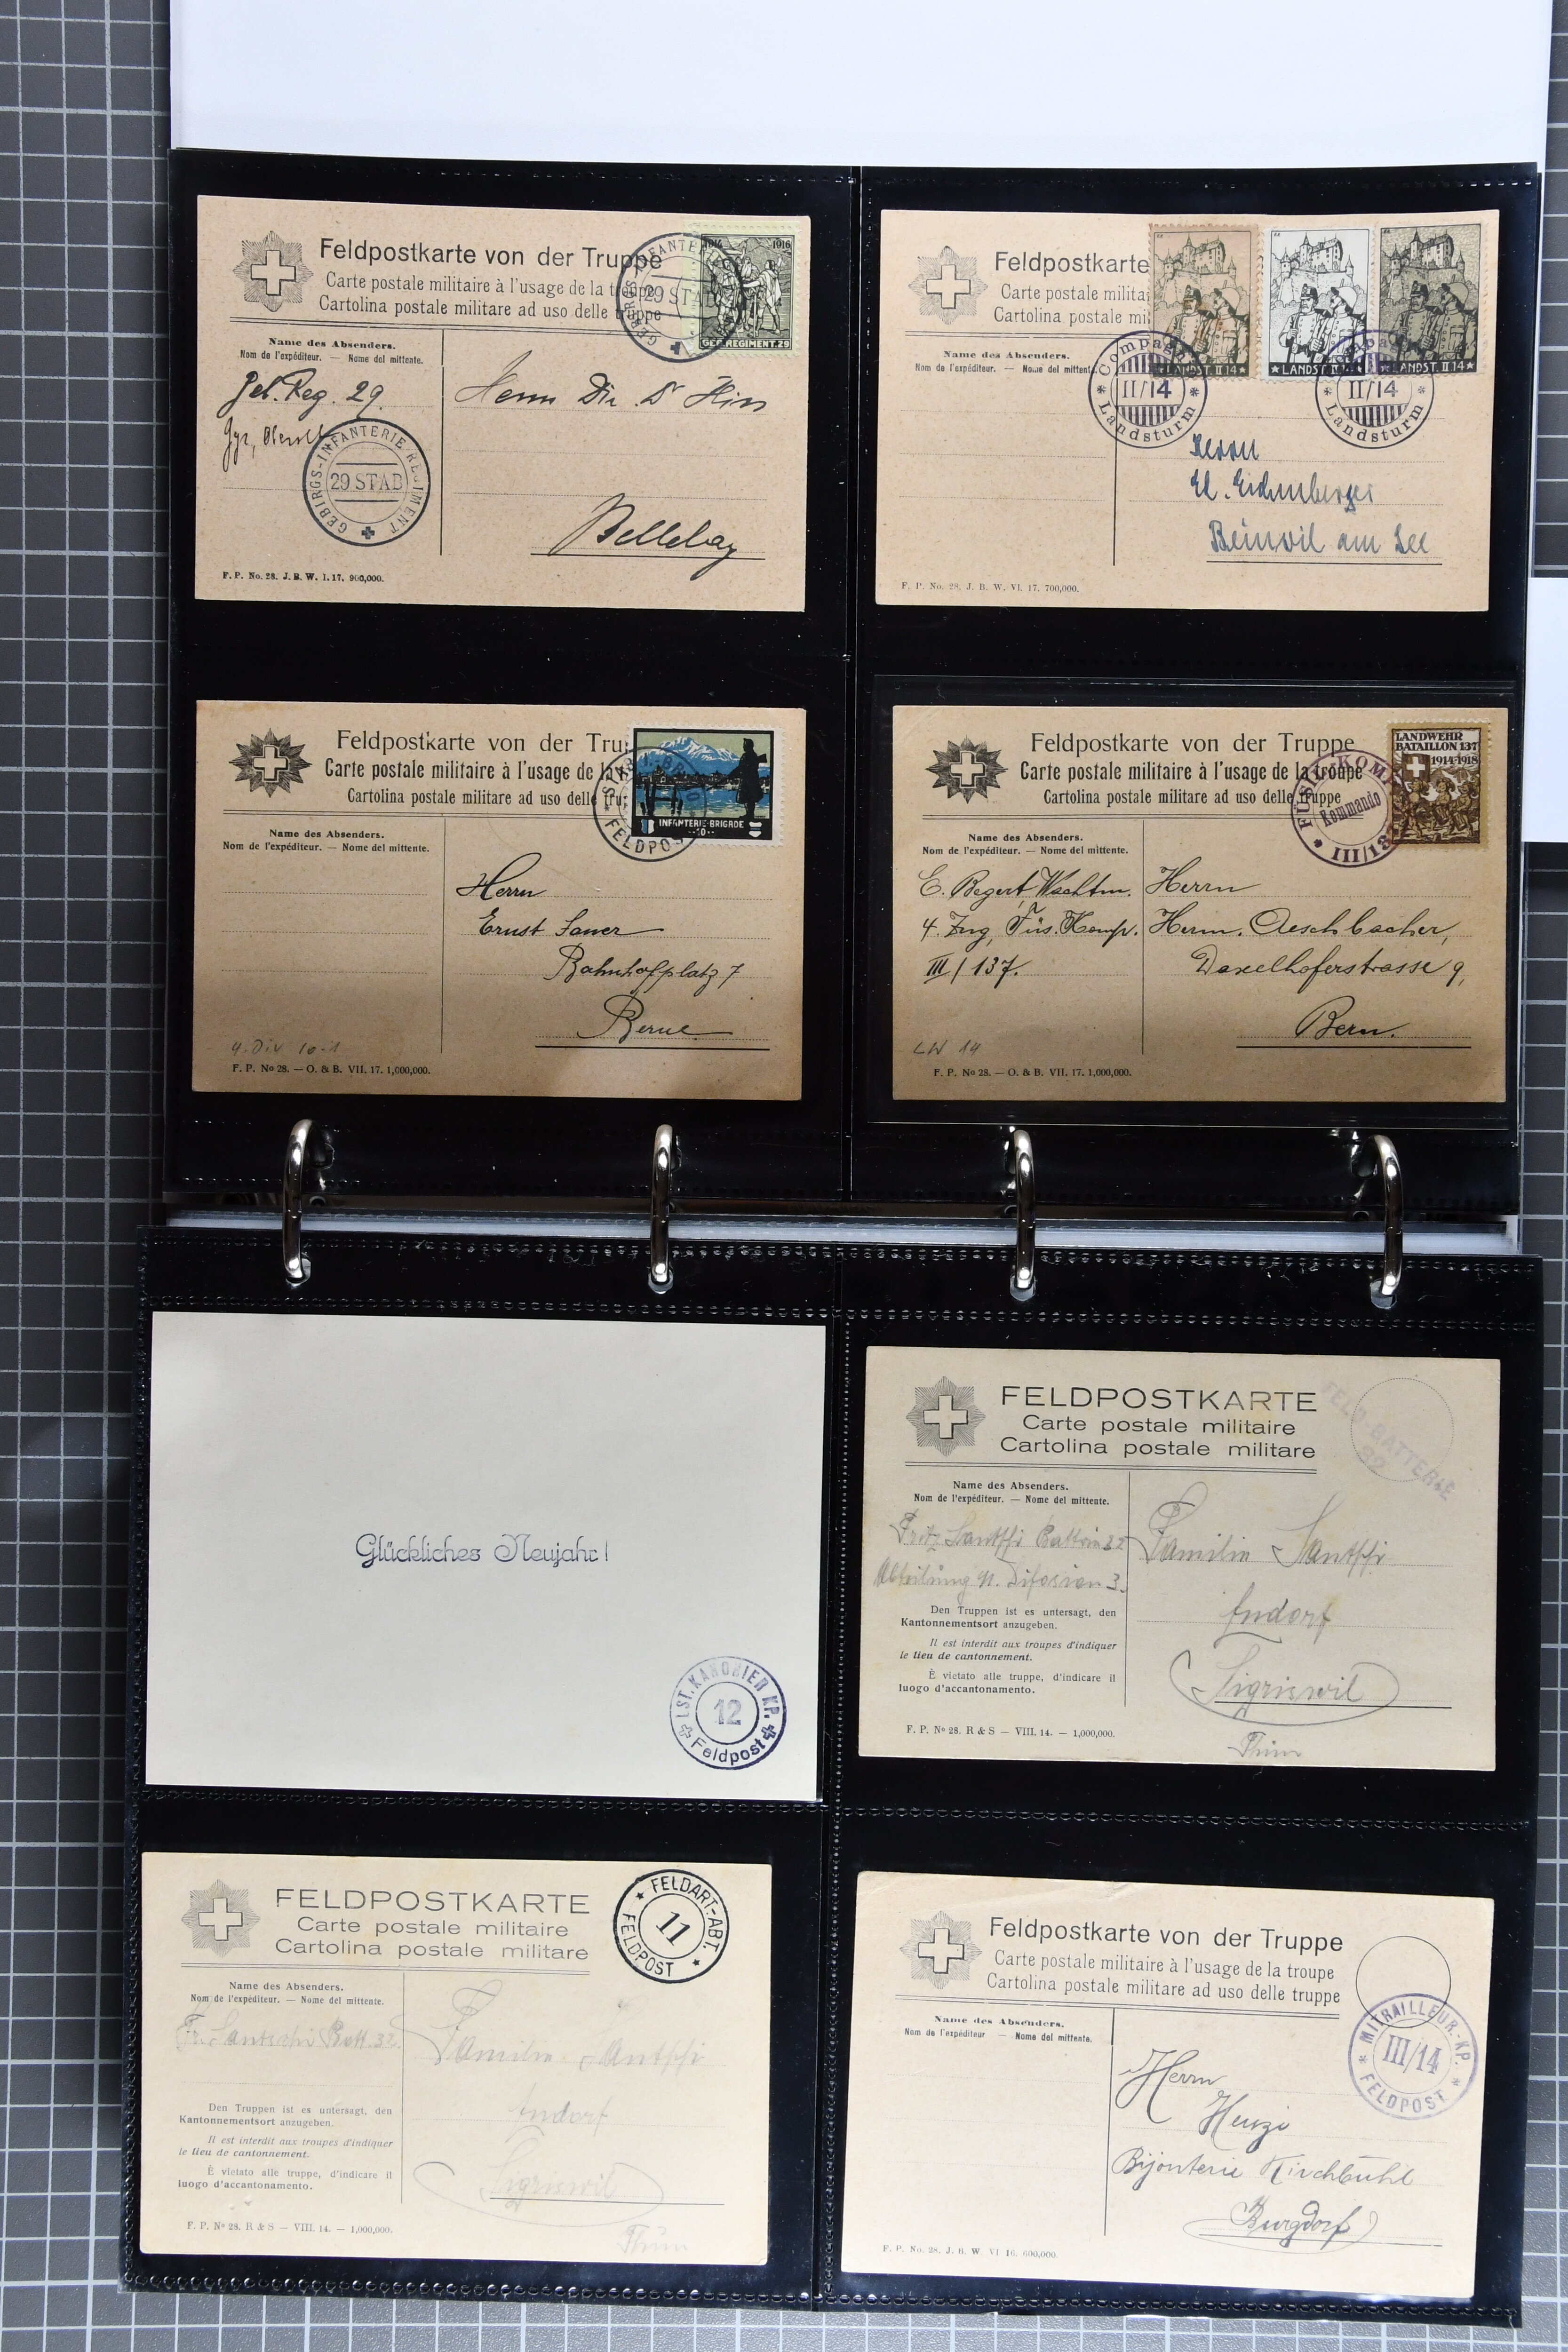 Feldpostkarte von der Truppe
Carte postale militaire à l'usage de la troupe
Cartolina postale militare ad uso delle truppe
1916
GEB. REGIMENT. 29
29 STAB
Name des Absenders.
Nom de l'expéditeur. — Nome del mittente.
Geb. Reg. 29.
GEBIRGS-INFANTERIE-REGIMENT
29 STAB
Herrn Dir. Dr
Bellelay
F. P. No. 28. J. B. W. I. 17. 900,000.
Feldpostkarte
Carte postale militai
Cartolina postale mi
LANDST. II 14
LANDST. II 14
LANDST. II 14
Name des Absenders.
Nom de l'expéditeur. — Nome del mittent
Compagn
II/14
Landsturm
II/14
Landsturm
Herrn
Eichenberger
Beinwil am See
F. P. No. 28. J. B. W. VI. 17. 700,000.
Feldpostkarte von der Tru
Carte postale militaire à l'usage de la
Cartolina postale militare ad uso delle tru
INFANTERIE-BRIGADE
10
FELDPOS
Name des Absenders.
Nom de l'expéditeur. — Nome del mittente.
Herrn
Ernst
Bahnhofplatz 7
Berne
4. Div 10.1
F. P. No 28. — O. & B. VII. 17. 1,000,000.
Feldpostkarte von der Truppe
Carte postale militaire à l'usage de la troupe
Cartolina postale militare ad uso delle truppe
LANDWEHR
BATAILLON 137
1914-1918
Kommando
III/13
Name des Absenders.
Nom de l'expéditeur. — Nome del mittente.
E. Begert, Wachtm.
4. Zug, Füs. Komp.
III/137.
Herrn
Herm. Aeschbacher,
Daxelhoferstrasse 9,
Bern.
LW 14
F. P. No 28. — O. & B. VII. 17. 1,000,000.
Glückliches Neujahr!
LST. KANONIER KP.
12
Feldpost
FELDPOSTKARTE
Carte postale militaire
Cartolina postale militare
FELD-BATTERIE
32
Name des Absenders.
Nom de l'expéditeur. — Nome del mittente.
Familie
Sigriswil
Thun
Den Truppen ist es untersagt, den
Kantonnementsort anzugeben.
Il est interdit aux troupes d'indiquer
le lieu de cantonnement.
È vietato alle truppe, d'indicare il
luogo d'accantonamento.
F. P. No 28. R & S — VIII. 14. — 1,000,000.
FELDPOSTKARTE
Carte postale militaire
Cartolina postale militare
FELDART.-ABT.
11
FELDPOST
Name des Absenders.
Nom de l'expéditeur. — Nome del mittente.
Familie
Sigriswil
Thun
Den Truppen ist es untersagt, den
Kantonnementsort anzugeben.
Il est interdit aux troupes d'indiquer
le lieu de cantonnement.
È vietato alle truppe, d'indicare il
luogo d'accantonamento.
F. P. No 28. R & S — VIII. 14. — 1,000,000.
Feldpostkarte von der Truppe
Carte postale militaire à l'usage de la troupe
Cartolina postale militare ad uso delle truppe
MITRAILLEUR.-KP.
III/14
FELDPOST
Name des Absenders.
Nom de l'expéditeur — Nome del mittente.
Herrn
Henzi
Bijouterie Kirchbühl
Burgdorf
F. P. No. 28. J. B. W. VI 16. 600,000.